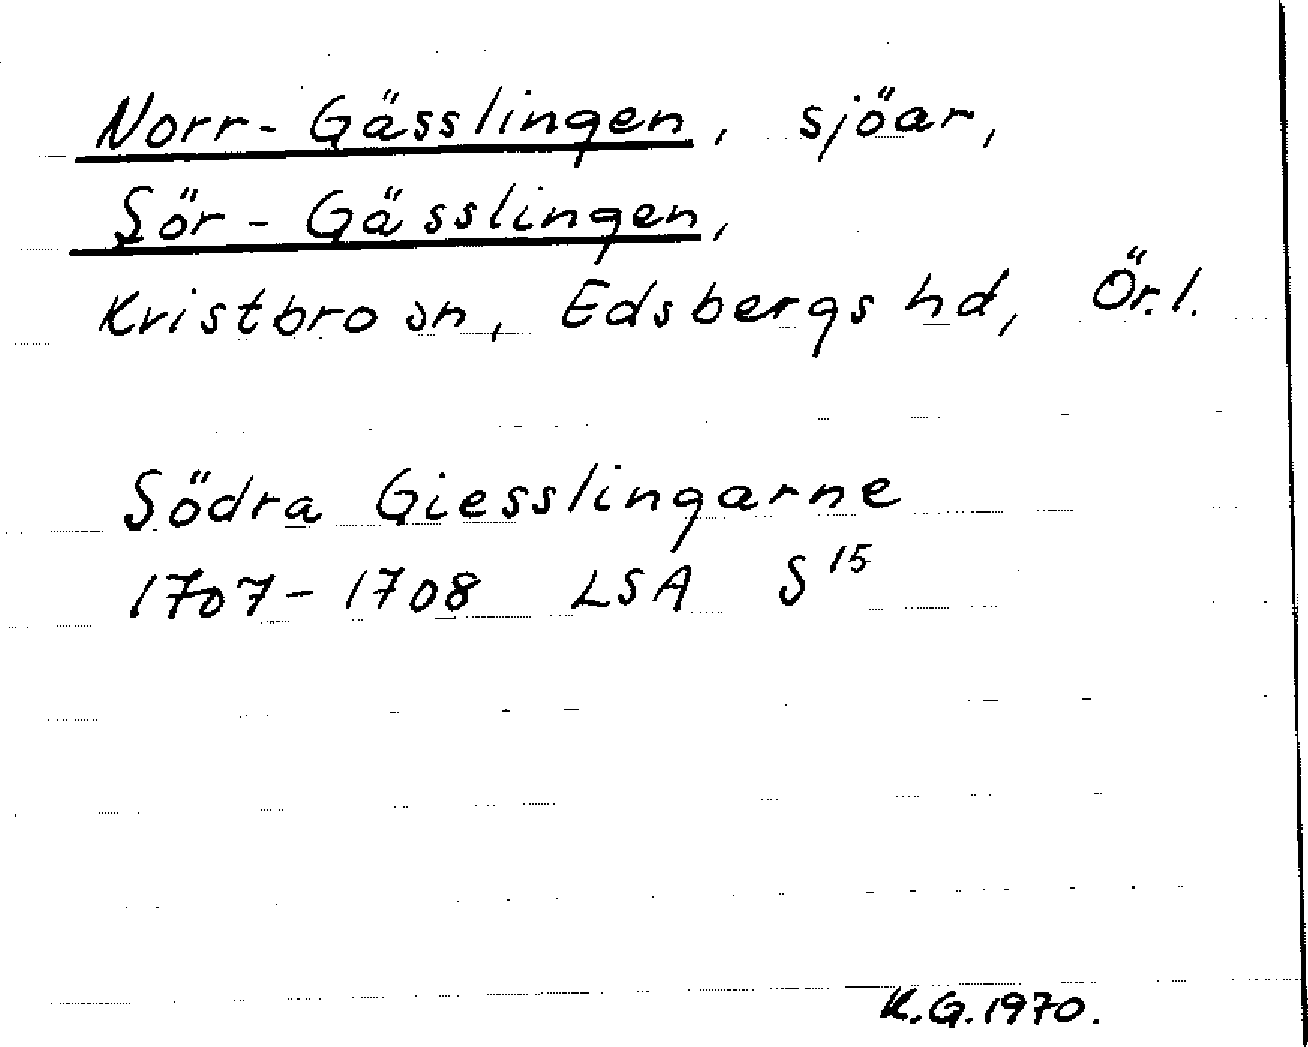 Norr-Gässlingen, sjöar,
Sör-Gässlingen,
Kristbro sn, Edsbergs hd, Ör.l.
Södra Giesslingarne
1707-1708 LSA S 15
K.G.1970.